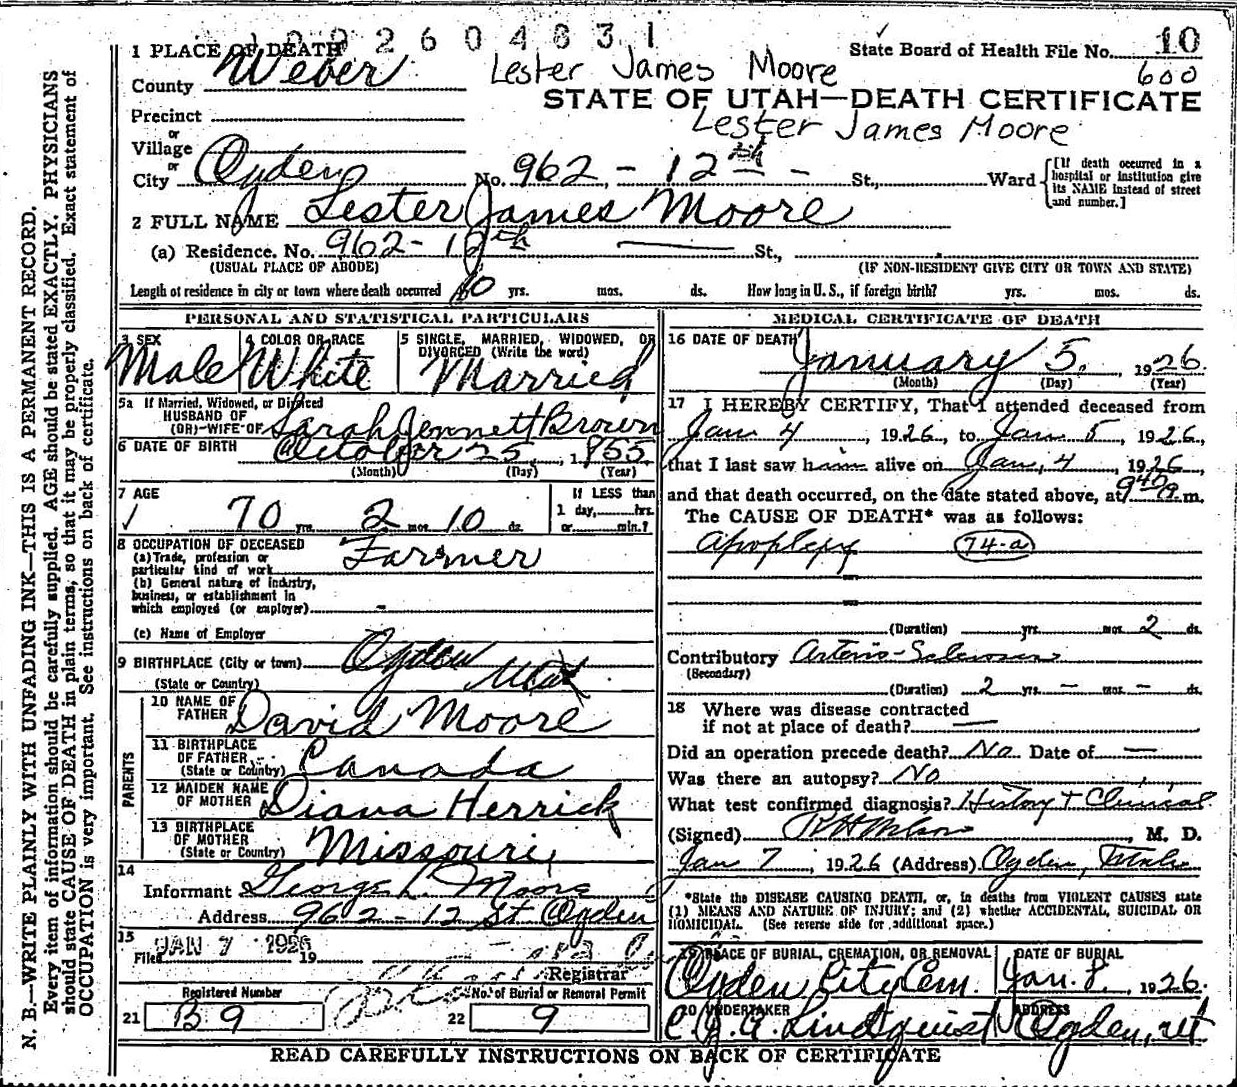 1 0 0 2 6 0 4 8 3 1
1 PLACE OF DEATH
State Board of Health File No. 10
County Weber
Lester James Moore
600
STATE OF UTAH—DEATH CERTIFICATE
Precinct
Lester James Moore
or
Village
or
City Ogden No. 962 - 12th - St., Ward
[If death occurred in a hospital or institution give its NAME instead of street and number.]
2 FULL NAME Lester James Moore
(a) Residence. No. 962 - 12th St.,
(USUAL PLACE OF ABODE)
(IF NON-RESIDENT GIVE CITY OR TOWN AND STATE)
Length of residence in city or town where death occurred yrs. mos. ds. How long in U. S., if foreign birth? yrs. mos. ds.
PERSONAL AND STATISTICAL PARTICULARS
3 SEX
Male
4 COLOR OR RACE
White
5 SINGLE, MARRIED, WIDOWED, OR
DIVORCED (Write the word)
Married
5a If Married, Widowed, or Divorced
HUSBAND OF
(OR) WIFE OF Sarah Jennett Brown
6 DATE OF BIRTH October 25, 1855
(Month) (Day) (Year)
7 AGE
70 yrs. 2 mos. 10 ds.
If LESS than
1 day, hrs.
or min.?
8 OCCUPATION OF DECEASED
(a) Trade, profession or
particular kind of work Farmer
(b) General nature of industry,
business, or establishment in
which employed (or employer) -
(c) Name of Employer
9 BIRTHPLACE (City or town) Ogden
(State or Country) Utah
PARENTS
10 NAME OF
FATHER David Moore
11 BIRTHPLACE
OF FATHER
(State or Country) Canada
12 MAIDEN NAME
OF MOTHER Diana Herrick
13 BIRTHPLACE
OF MOTHER
(State or Country) Missouri
14
Informant George L. Moore
Address 962 - 12 St Ogden
15
Filed JAN 7 1926 19
Registrar
Registered Number
21 B9
No. of Burial or Removal Permit
22 9
MEDICAL CERTIFICATE OF DEATH
16 DATE OF DEATH
January 5. 1926.
(Month) (Day) (Year)
17 I HEREBY CERTIFY, That I attended deceased from
Jan 4, 1926, to Jan 5, 1926,
that I last saw him alive on Jan, 4, 1926
and that death occurred, on the date stated above, at 9 40 a. m.
The CAUSE OF DEATH* was as follows:
Apoplexy 74-a
(Duration) yrs. mos. 2 ds.
Contributory Arterio-Sclerosis
(Secondary)
(Duration) 2 yrs. - mos. - ds.
18 Where was disease contracted
if not at place of death? —
Did an operation precede death? No Date of —
Was there an autopsy? No
What test confirmed diagnosis? History + Clinical
(Signed) M. D.
Jan 7, 1926 (Address) Ogden, Utah
*State the DISEASE CAUSING DEATH, or, in deaths from VIOLENT CAUSES state
(1) MEANS AND NATURE OF INJURY; and (2) whether ACCIDENTAL, SUICIDAL OR
HOMICIDAL. (See reverse side for additional space.)
19 PLACE OF BURIAL, CREMATION, OR REMOVAL
Ogden City Cem.
DATE OF BURIAL
Jan. 8, 1926.
20 UNDERTAKER
Lindquist
ADDRESS
Ogden, Ut
READ CAREFULLY INSTRUCTIONS ON BACK OF CERTIFICATE
N. B.—WRITE PLAINLY WITH UNFADING INK—THIS IS A PERMANENT RECORD.
Every item of information should be carefully supplied. AGE should be stated EXACTLY. PHYSICIANS
should state CAUSE OF DEATH in plain terms, so that it may be properly classified. Exact statement of
OCCUPATION is very important. See instructions on back of certificate.